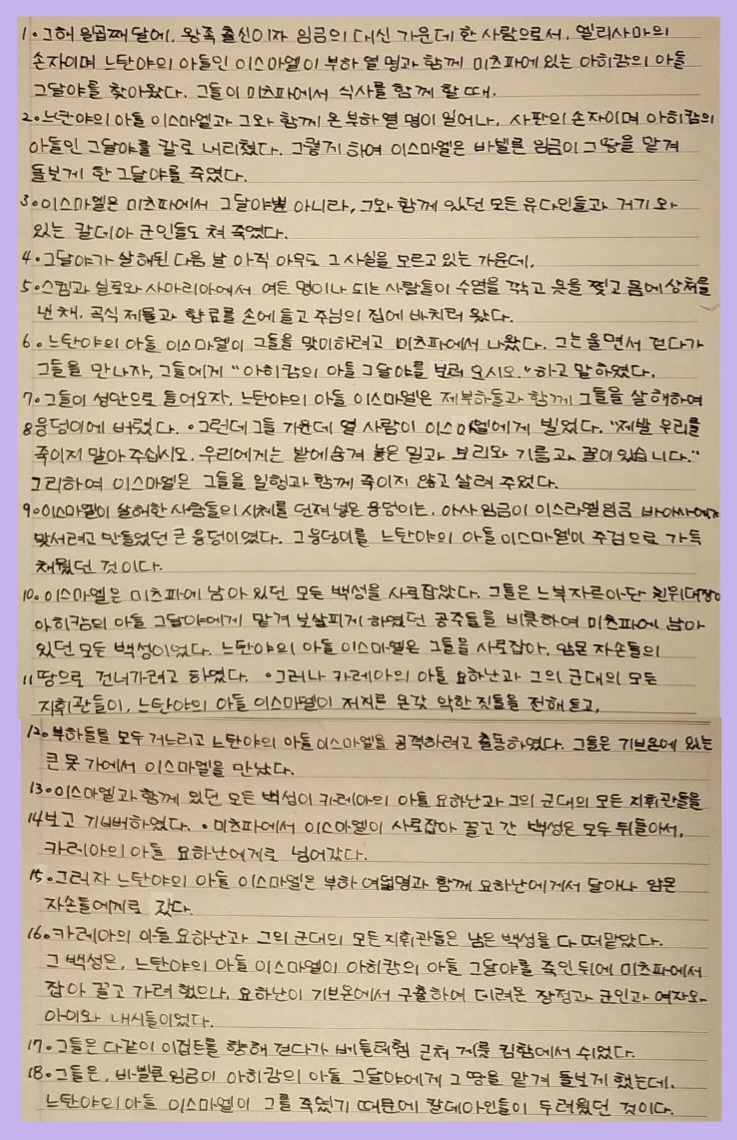 1. 그해 일곱째 달에, 왕족 출신이자 임금의 대신 가운데 한 사람으로서, 엘리사마의
손자이며 느탄야의 아들인 이스마엘이 부하 열 명과 함께 미츠파에 있는 아히캄의 아들
그달야를 찾아왔다. 그들이 미츠파에서 식사를 함께 할 때,
2. 느탄야의 아들 이스마엘과 그와 함께 온 부하 열 명이 일어나, 사판의 손자이며 아히캄의
아들인 그달야를 칼로 내리쳤다. 그렇게 하여 이스마엘은 바빌론 임금이 그 땅을 맡겨
돌보게 한 그달야를 죽였다.
3. 이스마엘은 미츠파에서 그달야뿐 아니라, 그와 함께 있던 모든 유다인들과 거기 와
있는 칼데아 군인들도 쳐 죽였다.
4. 그달야가 살해된 다음 날 아직 아무도 그 사실을 모르고 있는 가운데,
5. 스켐과 실로와 사마리아에서 여든 명이나 되는 사람들이 수염을 깎고 옷을 찢고 몸에 상처를
낸 채, 곡식 제물과 향료를 손에 들고 주님의 집에 바치러 왔다.
6. 느탄야의 아들 이스마엘이 그들을 맞이하려고 미츠파에서 나왔다. 그는 울면서 걷다가
그들을 만나자, 그들에게 "아히캄의 아들 그달야를 보러 오시오." 하고 말하였다.
7. 그들이 성안으로 들어오자, 느탄야의 아들 이스마엘은 제 부하들과 함께 그들을 살해하여
8 웅덩이에 버렸다. • 그런데 그들 가운데 열 사람이 이스마엘에게 빌었다. "제발 우리를
죽이지 말아 주십시오. 우리에게는 밭에 숨겨 놓은 밀과 보리와 기름과 꿀이 있습니다."
그리하여 이스마엘은 그들을 일행과 함께 죽이지 않고 살려 주었다.
9. 이스마엘이 살해한 사람들의 시체를 던져 넣은 웅덩이는, 아사 임금이 이스라엘 임금 바아사에게
맞서려고 만들었던 큰 웅덩이였다. 그 웅덩이를 느탄야의 아들 이스마엘이 주검으로 가득
채웠던 것이다.
10. 이스마엘은 미츠파에 남아 있던 모든 백성을 사로잡았다. 그들은 느부자르아단 친위대장이
아히캄의 아들 그달야에게 맡겨 보살피게 하였던 공주들을 비롯하여 미츠파에 남아
있던 모든 백성이었다. 느탄야의 아들 이스마엘은 그들을 사로잡아, 암몬 자손들의
11 땅으로 건너가려고 하였다. • 그러나 카레아의 아들 요하난과 그의 군대의 모든
지휘관들이, 느탄야의 아들 이스마엘이 저지른 온갖 악한 짓들을 전해 듣고,
12. 부하들을 모두 거느리고 느탄야의 아들 이스마엘을 공격하려고 출동하였다. 그들은 기브온에 있는
큰 못 가에서 이스마엘을 만났다.
13. 이스마엘과 함께 있던 모든 백성이 카레아의 아들 요하난과 그의 군대의 모든 지휘관들을
14 보고 기뻐하였다. • 미츠파에서 이스마엘이 사로잡아 끌고 간 백성은 모두 뒤돌아서,
카레아의 아들 요하난에게로 넘어갔다.
15. 그러자 느탄야의 아들 이스마엘은 부하 여덟명과 함께 요하난에게서 달아나 암몬
자손들에게로 갔다.
16. 카레아의 아들 요하난과 그의 군대의 모든 지휘관들은 남은 백성을 다 떠맡았다.
그 백성은, 느탄야의 아들 이스마엘이 아히캄의 아들 그달야를 죽인 뒤에 미츠파에서
잡아 끌고 가려 했으나, 요하난이 기브온에서 구출하여 데려온 장정과 군인과 여자와
아이와 내시들이었다.
17. 그들은 다같이 이집트를 향해 걷다가 베들레헴 근처 게룻 킴함에서 쉬었다.
18. 그들은, 바빌론 임금이 아히캄의 아들 그달야에게 그 땅을 맡겨 돌보게 했는데,
느탄야의 아들 이스마엘이 그를 죽였기 때문에 칼데아인들이 두려웠던 것이다.